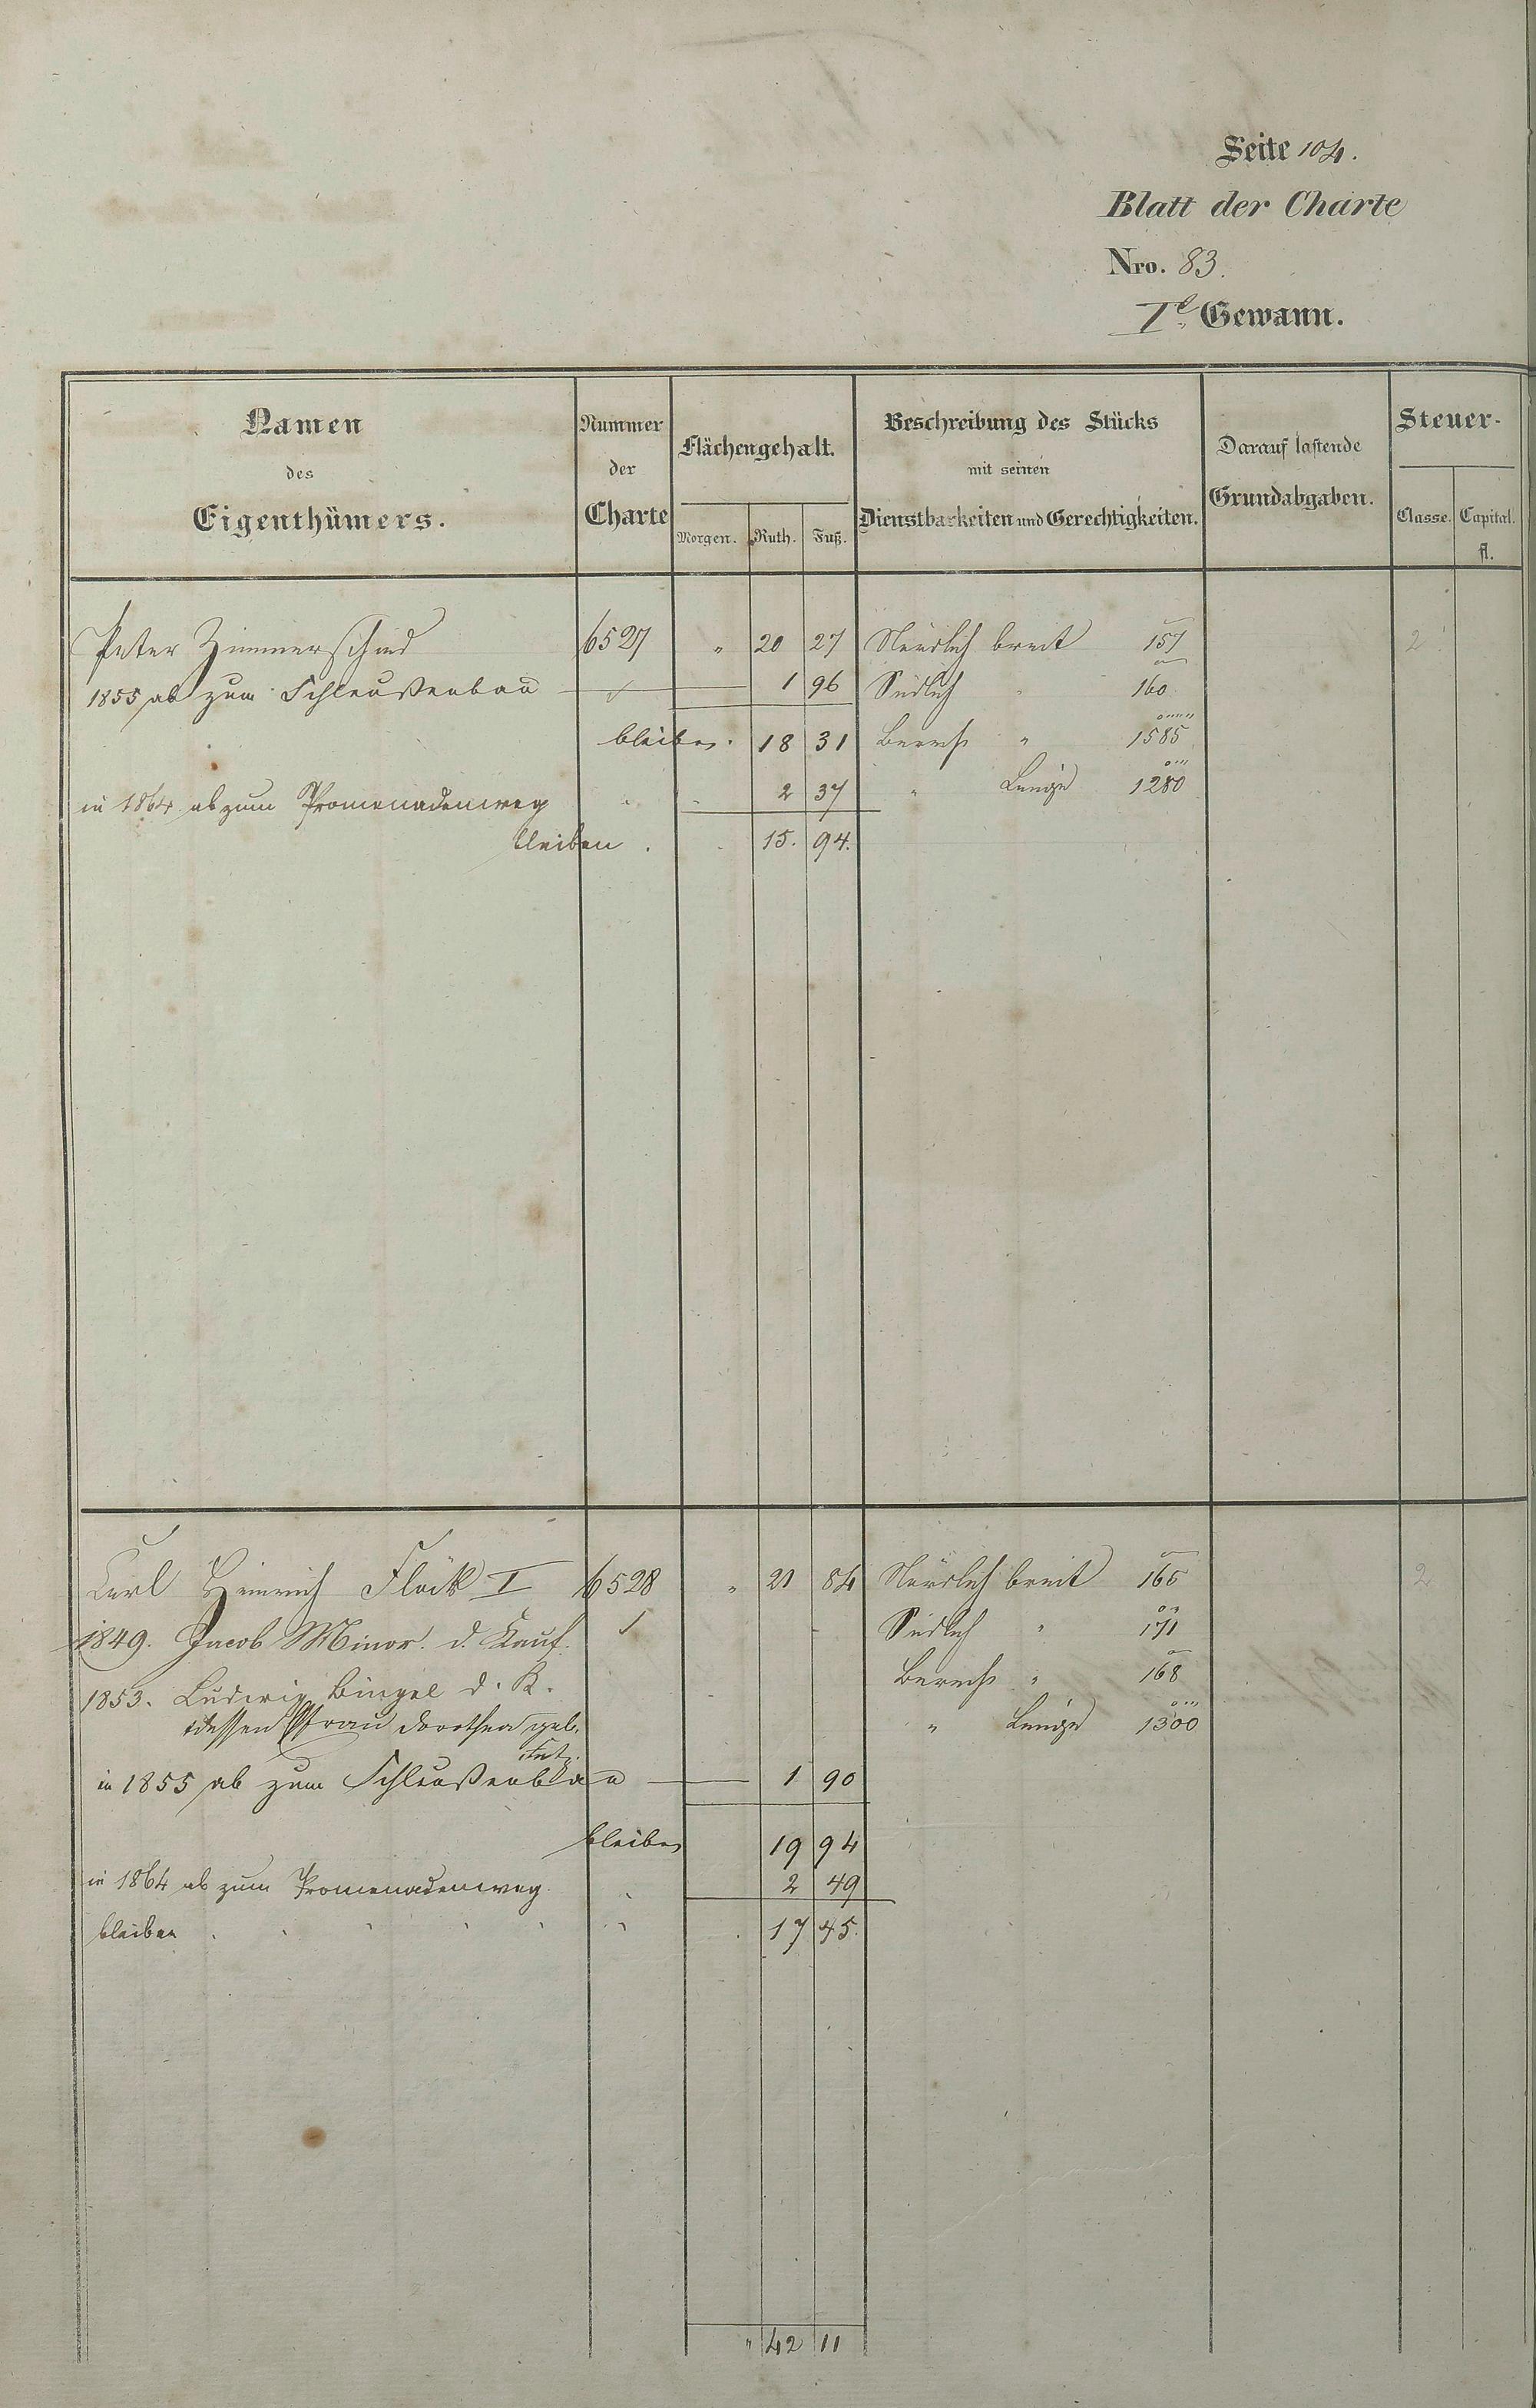 Seite 104.
Blatt der Charte
Nro. 83.
Ie. Gewann.
Namen des Eigenthümers.
Nummer der Charte
Flächengehalt.
Morgen. Ruth. Fuß.
Beschreibung des Stücks mit seinen Dienstbarkeiten und Gerechtigkeiten.
Darauf lastende Grundabgaben.
Steuer-
Classe. Capital. fl.
Peter Zimmerschied 6527 " 20 27 Nördlich breit 157 2
1855 ab zum Schleußenbau 1 96 Südlich " 160
bleiben. 18 31 Berech " 1585
in 1864 ab zum Promenadenweg 2 37 " Länge 1280
bleiben . 15. 94.
Carl Heinrich Flöck I 6528 " 21 84 Nördlich breit 165 2
1849. Jacob Minor. d. Kauf. Südlich " 171
1853. Ludwig Bingel d. K. Berech " 168
dessen Frau Dorothea geb. " Länge 1300
in 1855 ab zum Schleußenbau 1 90
bleiben 19 94
in 1864 ab zum Promenadenweg 2 49
bleiben . 17 45.
" 42 11